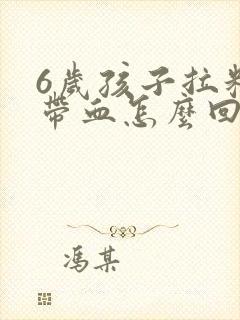 6歲孩子拉粑
帶血怎麼回
馮某